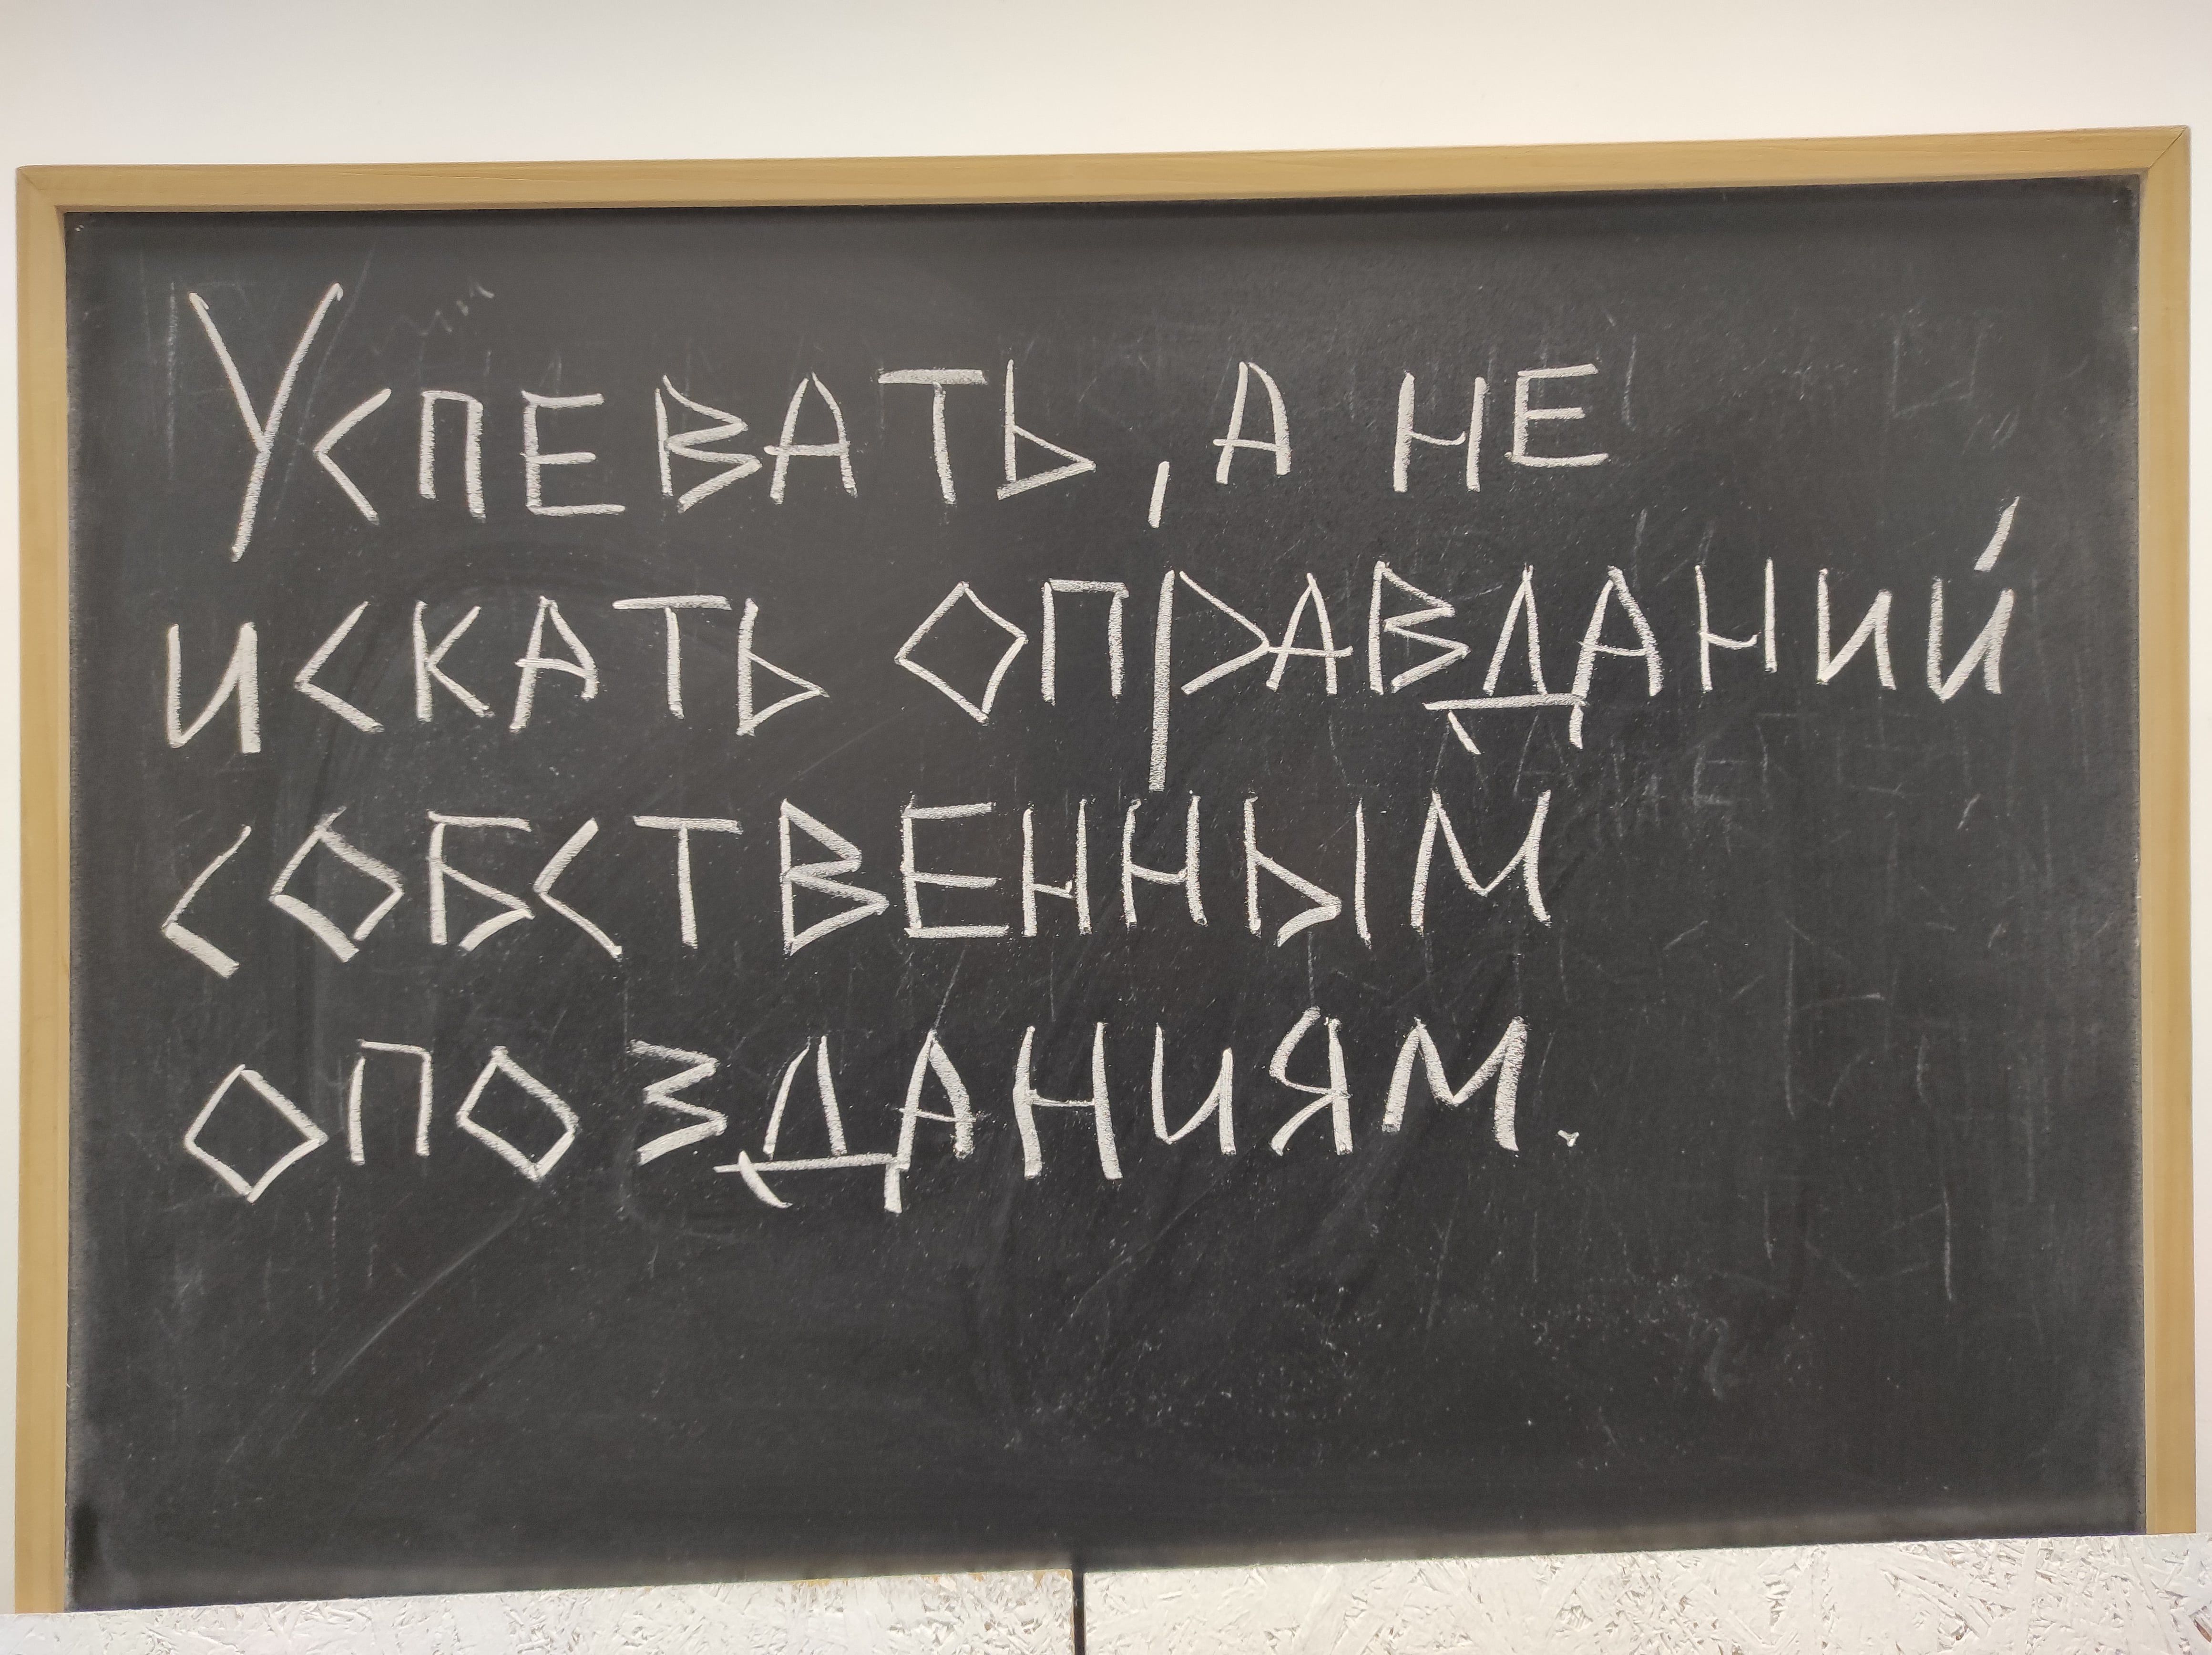 Успевать, а не
искать оправданий
собственным
опозданиям.